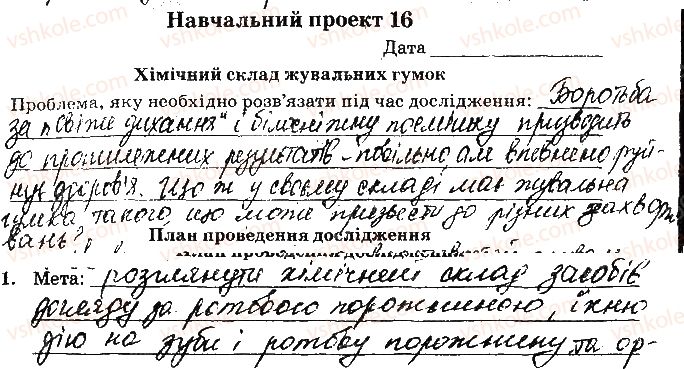 Навчальний проект 16
Дата
Хімічний склад жувальних гумок
Проблема, яку необхідно розв'язати під час дослідження: Боротьба
за "свіже дихання" і білосніжну посмішку призводить
до протилежних результатів - повільно але впевнено руй-
нує здоров'я. Що ж у своєму складі має жувальна
гумка такого, що може призвести до різних захворю-
вань?
План проведення дослідження
1. Мета: розглянути хімічний склад засобів
догляду за ротовою порожниною, їхню
дію на зуби і ротову порожнину та ор-